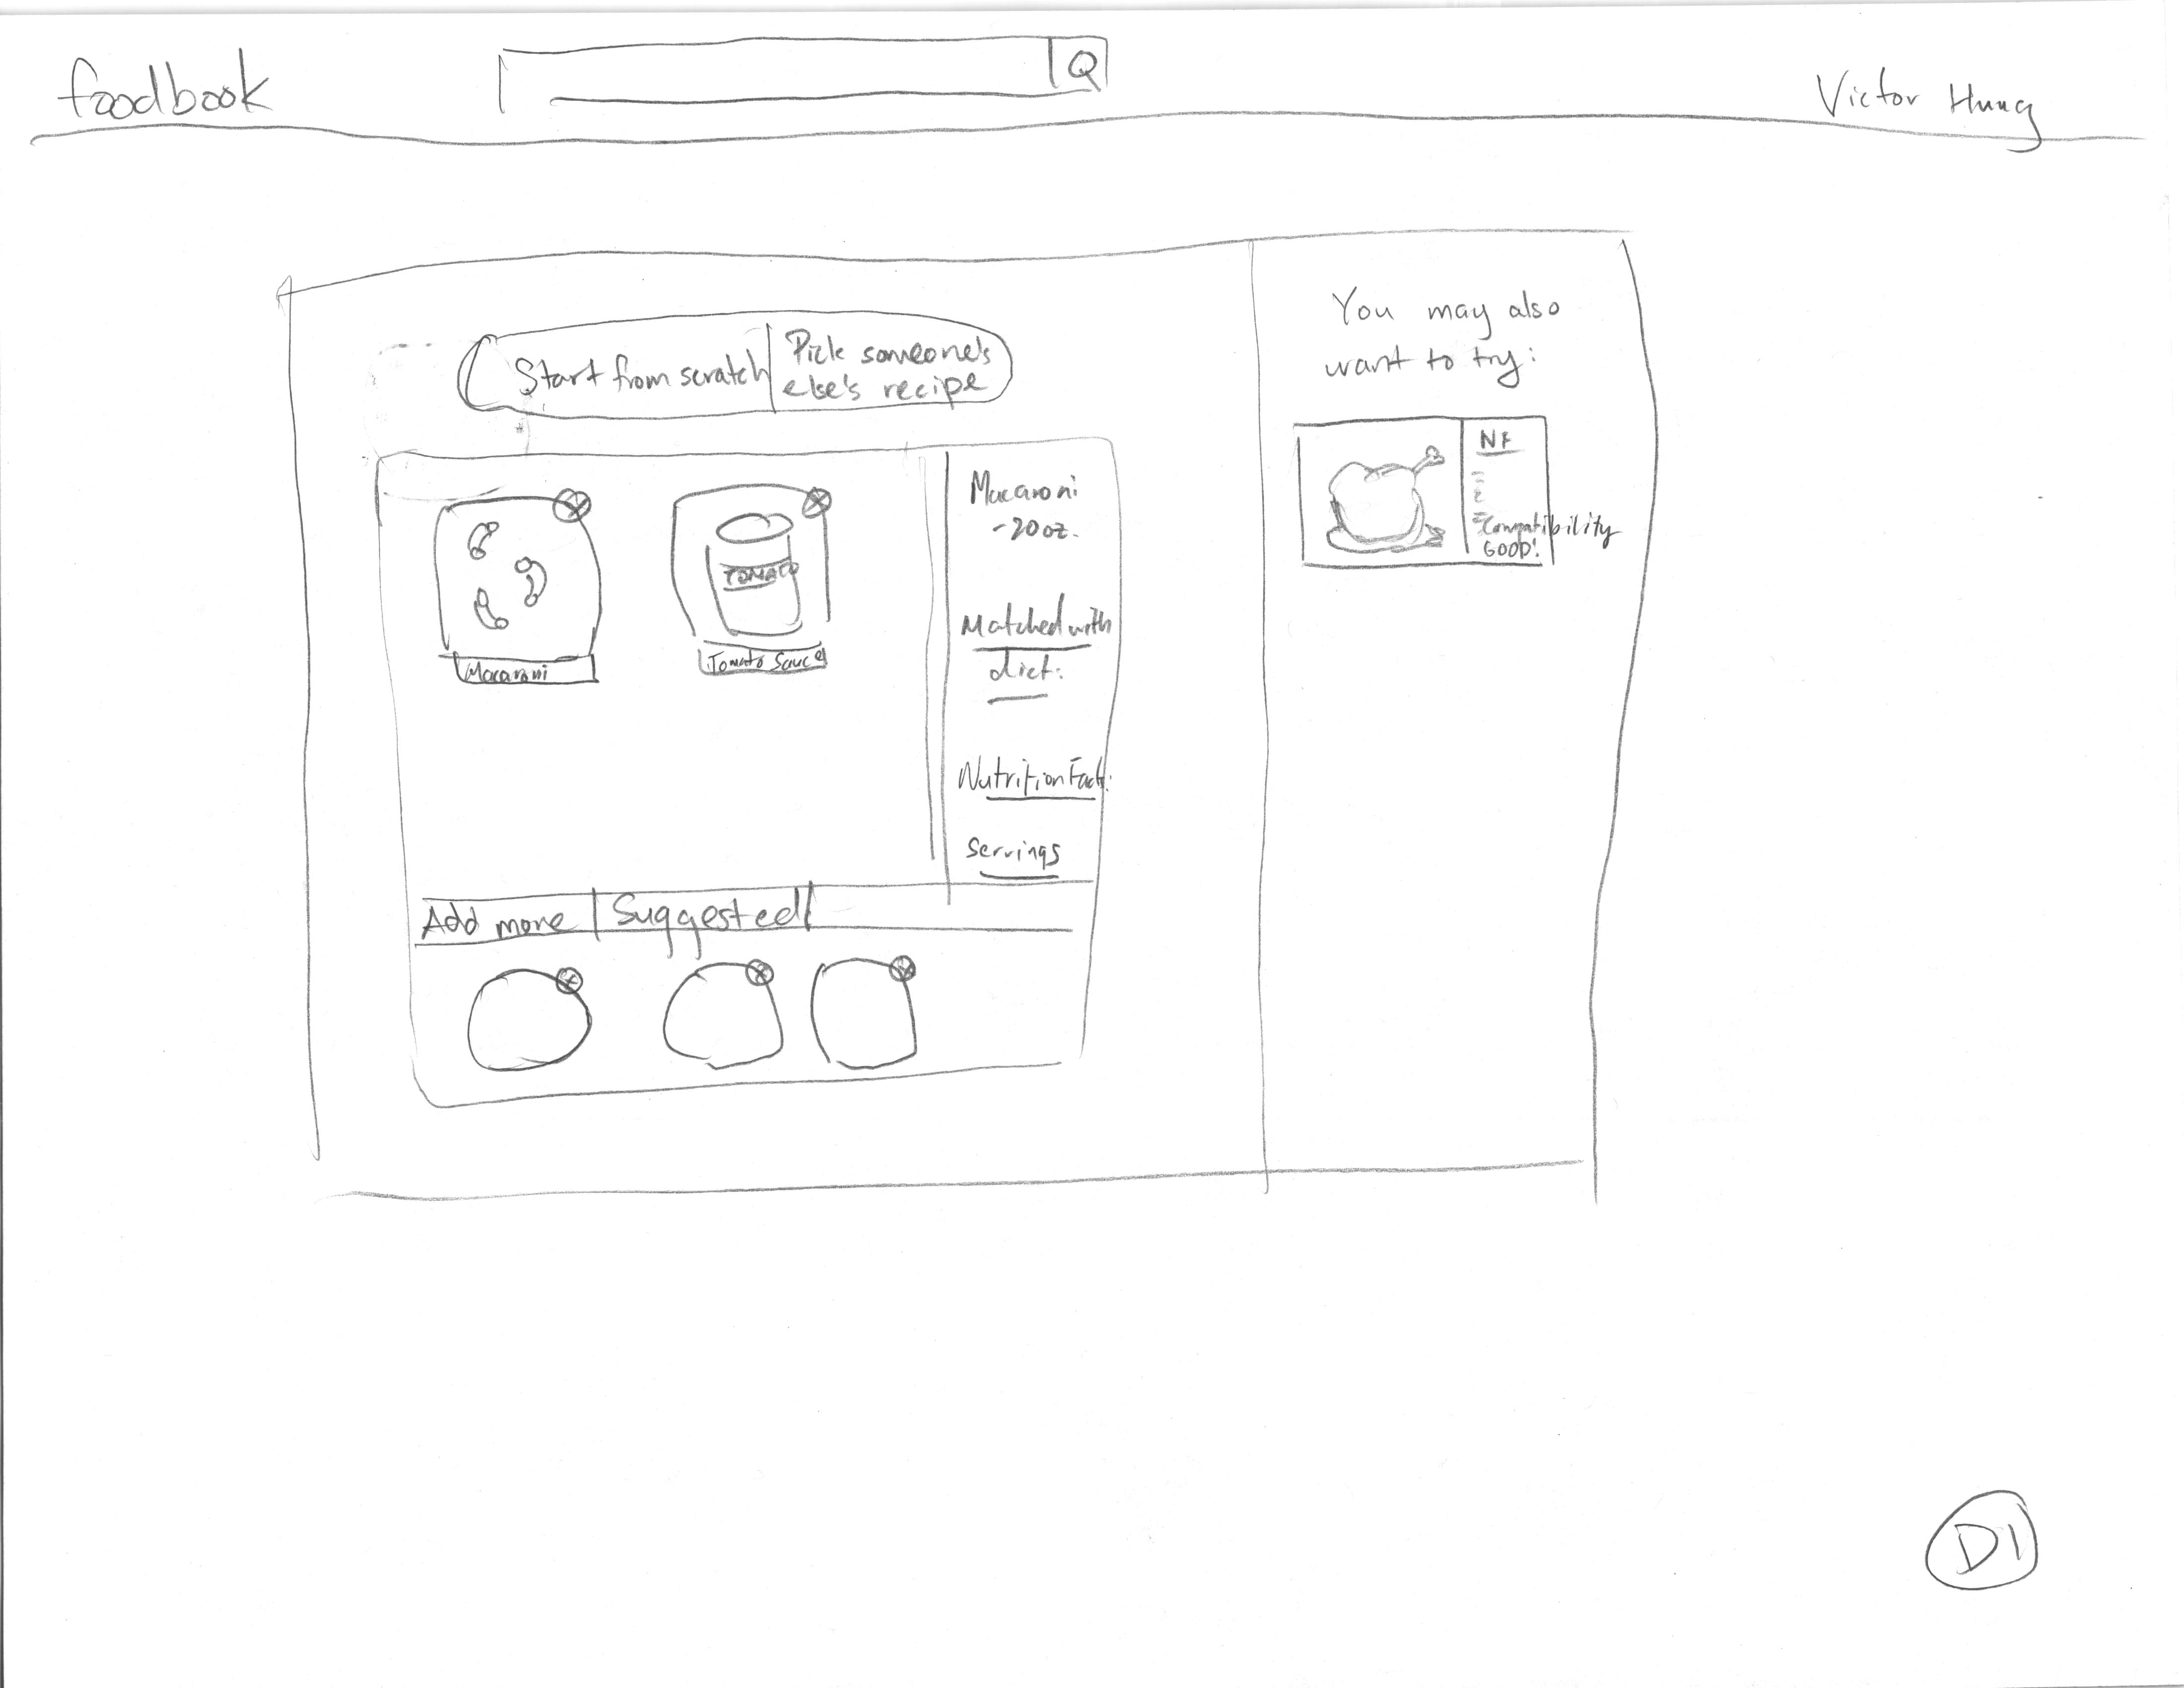 foodbook
Victor Hung
Start from scratch
Pick someone's
else's recipe
Macaroni
Tomato Sauce
TOMATO
Macaroni
-20oz.
Matched with
diet:
Nutrition Fact:
Servings
Add more
Suggested
You may also
want to try:
NF
Compatibility
GOOD!
D1